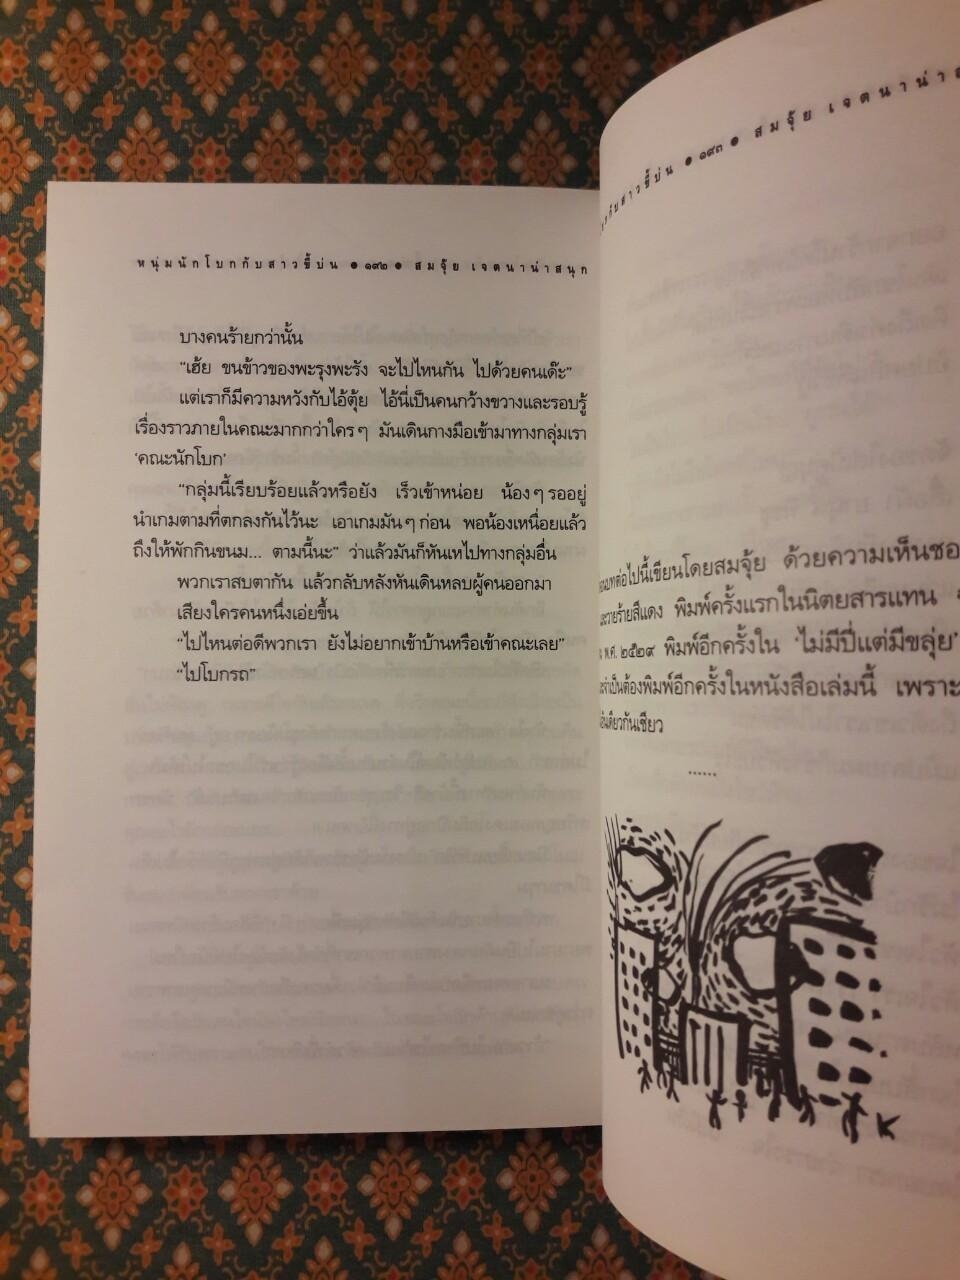 หนุ่มนักโบกกับสาวขี้บ่น ● ๑๙๒ ● สมจุ้ย เจตนาน่าสนุก
บางคนร้ายกว่านั้น
“เฮ้ย ขนข้าวของพะรุงพะรัง จะไปไหนกัน ไปด้วยคนเด๊ะ”
แต่เราก็มีความหวังกับไอ้ตุ้ย ไอ้นี่เป็นคนกว้างขวางและรอบรู้
เรื่องราวภายในคณะมากกว่าใครๆ มันเดินกางมือเข้ามาทางกลุ่มเรา
‘คณะนักโบก’
“กลุ่มนี้เรียบร้อยแล้วหรือยัง เร็วเข้าหน่อย น้องๆ รออยู่
นำเกมตามที่ตกลงกันไว้นะ เอาเกมมันๆ ก่อน พอน้องเหนื่อยแล้ว
ถึงให้พักกินขนม... ตามนี้นะ” ว่าแล้วมันก็หันเหไปทางกลุ่มอื่น
พวกเราสบตากัน แล้วกลับหลังหันเดินหลบผู้คนออกมา
เสียงใครคนหนึ่งเอ่ยขึ้น
“ไปไหนต่อดีพวกเรา ยังไม่อยากเข้าบ้านหรือเข้าคณะเลย”
“ไปโบกรถ”
กับสาวขี้บ่น ● ๑๙๓ ● สมจุ้ย เจตนาน่า
ต่อไปนี้เขียนโดยสมจุ้ย ด้วยความเห็นชอ
ละวายร้ายสีแดง พิมพ์ครั้งแรกในนิตยสารแทน
พ.ศ. ๒๕๒๙ พิมพ์อีกครั้งใน ‘ไม่มีปี่แต่มีขลุ่ย’
จำเป็นต้องพิมพ์อีกครั้งในหนังสือเล่มนี้ เพราะ
เดียวกันเชียว
......
K